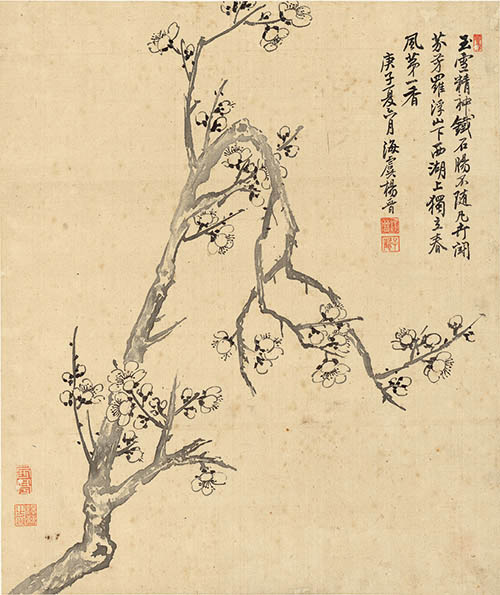 玉雪精神鐵石腸不隨凡卉鬪
芬芳羅浮山下西湖上獨占春
風第一香
庚子夏六月海虞楊晉